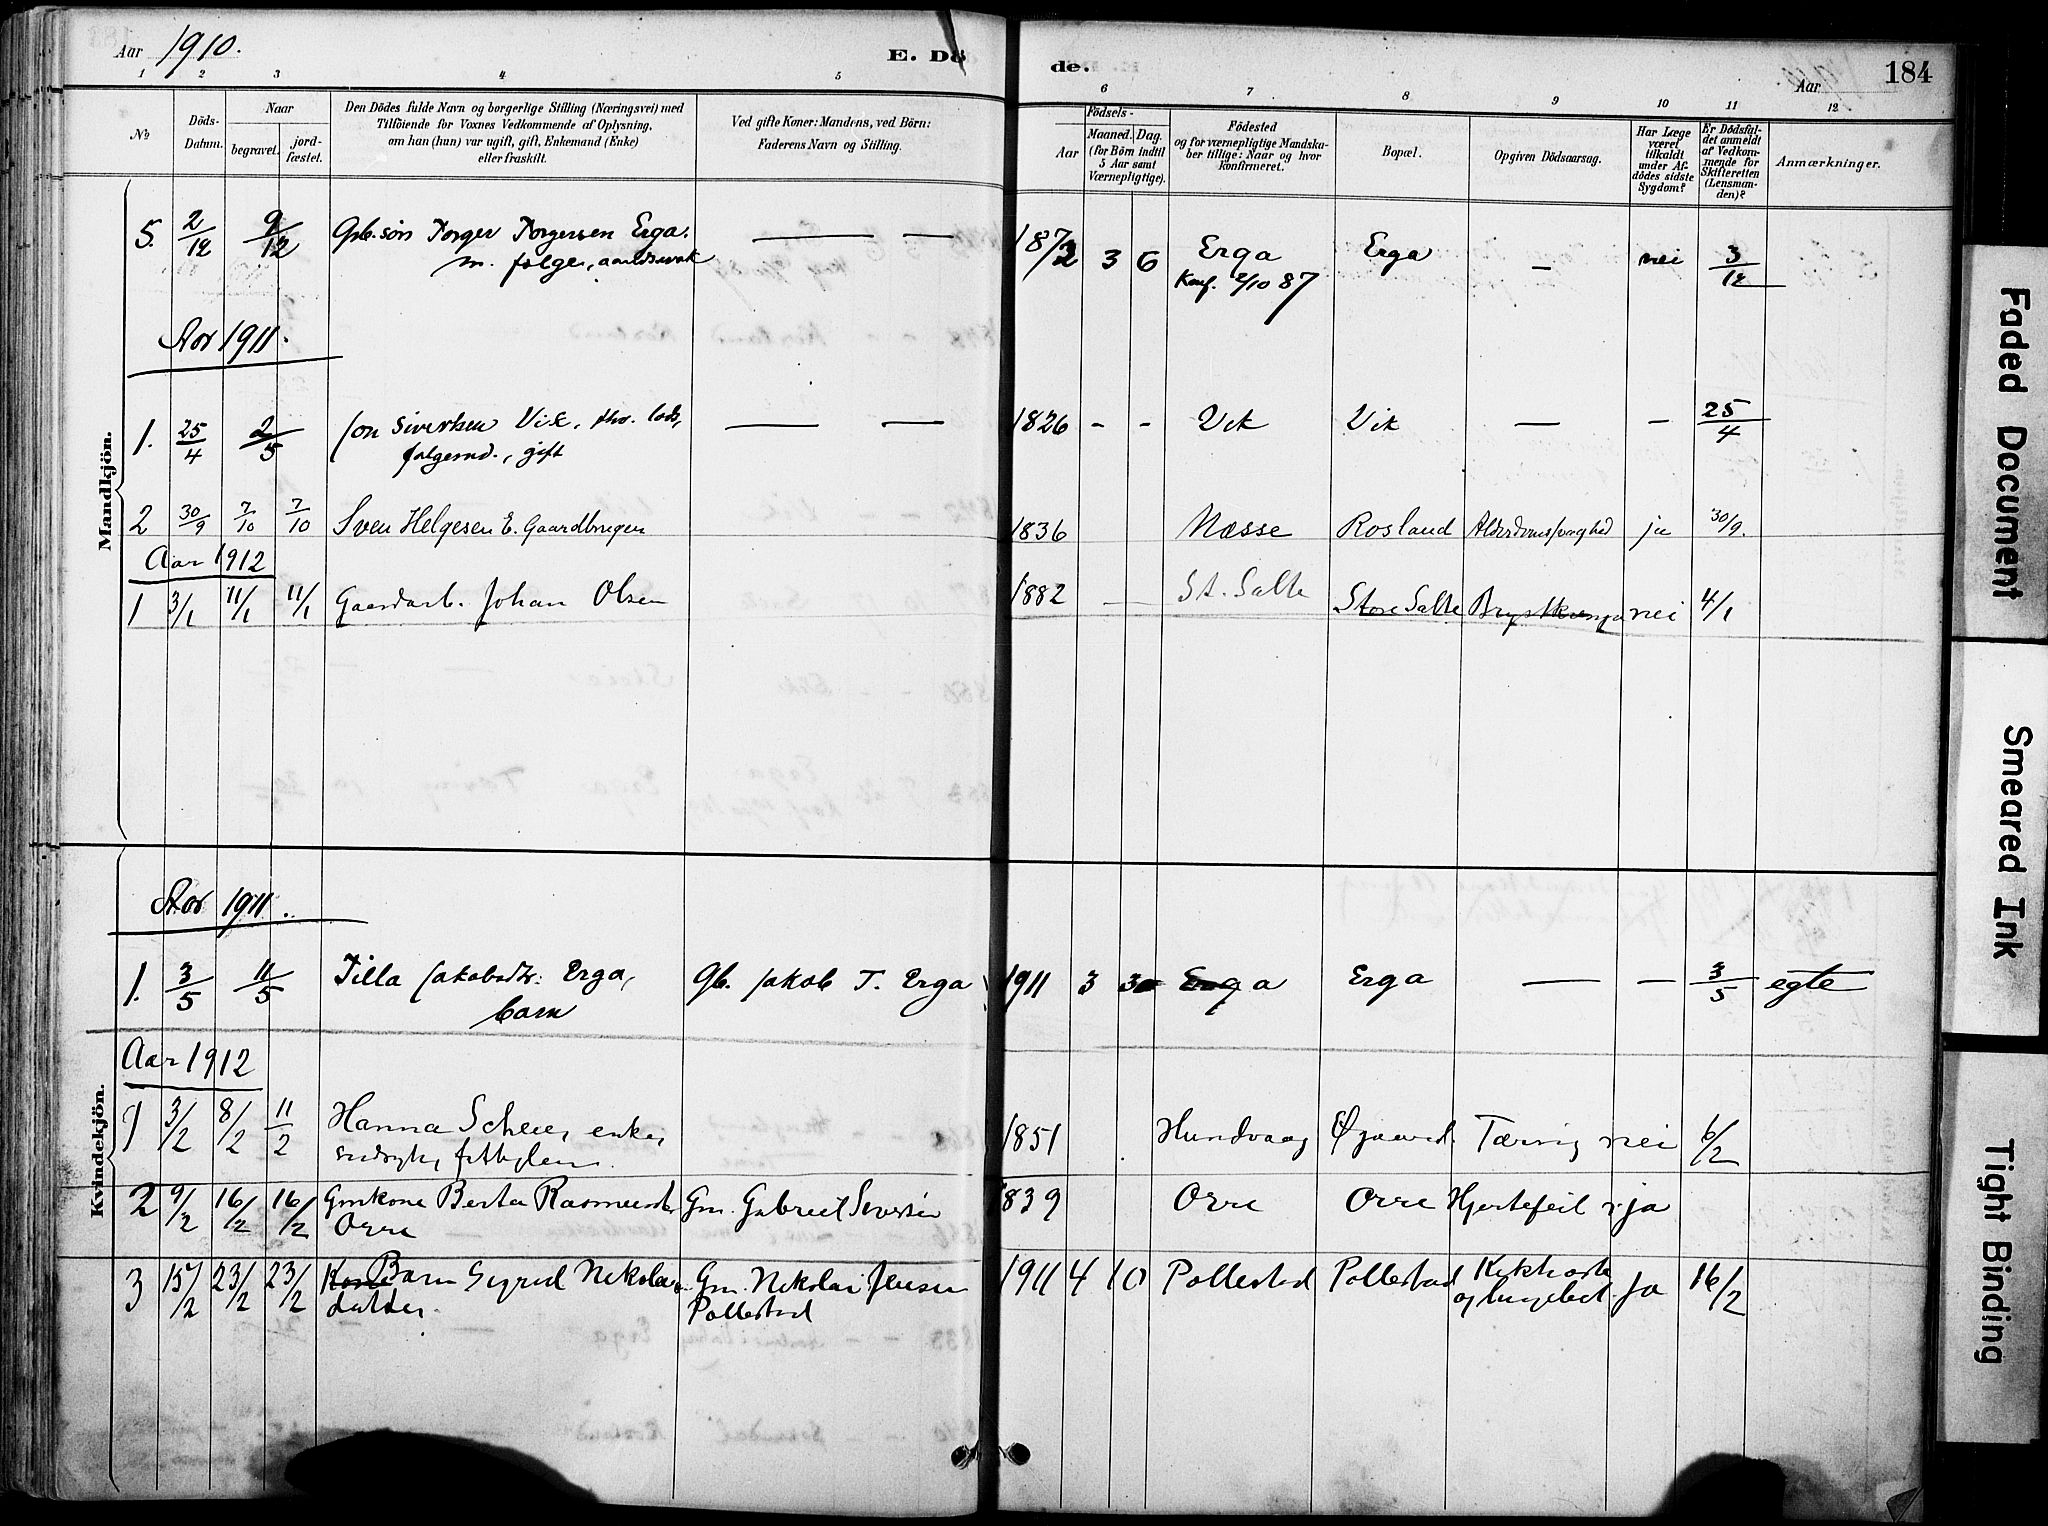 Aar 1910.
E. Dö
de.
Aar
184
1 2 3 4 5 6 7 8 9 10 11 12
No
Döds-Datum.
Naar
begravet.
jord-fæstet.
Den Dödes fulde Navn og borgerlige Stilling (Næringsvei) med
Tilföiende for Voxnes Vedkommende af Oplysning,
om han (hun) var ugift, gift, Enkemand (Enke)
eller fraskilt.
Ved gifte Koner: Mandens, ved Börn:
Faderens Navn og Stilling.
Födsels-
Aar
Maaned. Dag.
(for Börn indtil
5 Aar samt
Værnepligtige).
Födested
og for værnepligtige Mandska-
ber tillige: Naar og hvor
konfirmeret.
Bopæl.
Opgiven Dödsaarsag.
Har Læge
været
tilkaldt
under Af-
dödes sidste
Sygdom?
Er Dödsfal-
det anmeldt
af Vedkom-
mende for
Skifteretten
(Lensman-
den)?
Anmærkninger.
Mandkjön.
5. 2/12 9/12 Gb. sön Torger Torgersen Erga. — — 1872 3 6 Erga Erga — nei 3/12
m. følge,
Konf. 2/10 87
Aar 1911.
1. 25/4 2/5 Jon Sivertsen Vik, — — 1826 - - Vik Vik — — 25/4
folgemd., gift
2 30/9 7/10 7/10 Sven Helgesen E. Gaardbruger 1836 Næsse Rosland Alderdomssvaghed ja 30/9.
Aar 1912
1 3/1 11/1 11/1 Gaardarb. Johan Olsen 1882 — St. Salte Store Salte nei 4/1
Kvindekjön.
Aar 1911.
1. 3/5 11/5 Tilla Jakobsdtr. Erga, Gb. Jakob T. Erga 1911 3 30 Erga Erga — — 3/5 egte
barn
Aar 1912
1 3/2 8/2 11/2 Hanna Scheie, enke, 1851 Hundvaag Øgaard. Tæring nei 6/2
2 9/2 16/2 16/2 Gmkone Berta Rasmusdtr Gm. Gabriel Sivertsen 1839 Orre Orre Hjertefeil ja
Orre
3 15/2 23/2 23/2 Kone Barn Sigrid Nikolai- Gm. Nikolai Jensen 1911 4 10 Pollestad Pollestad Kikhoste ja 16/2
datter. Pollestad og
Faded Document
Smeared Ink
Tight Binding